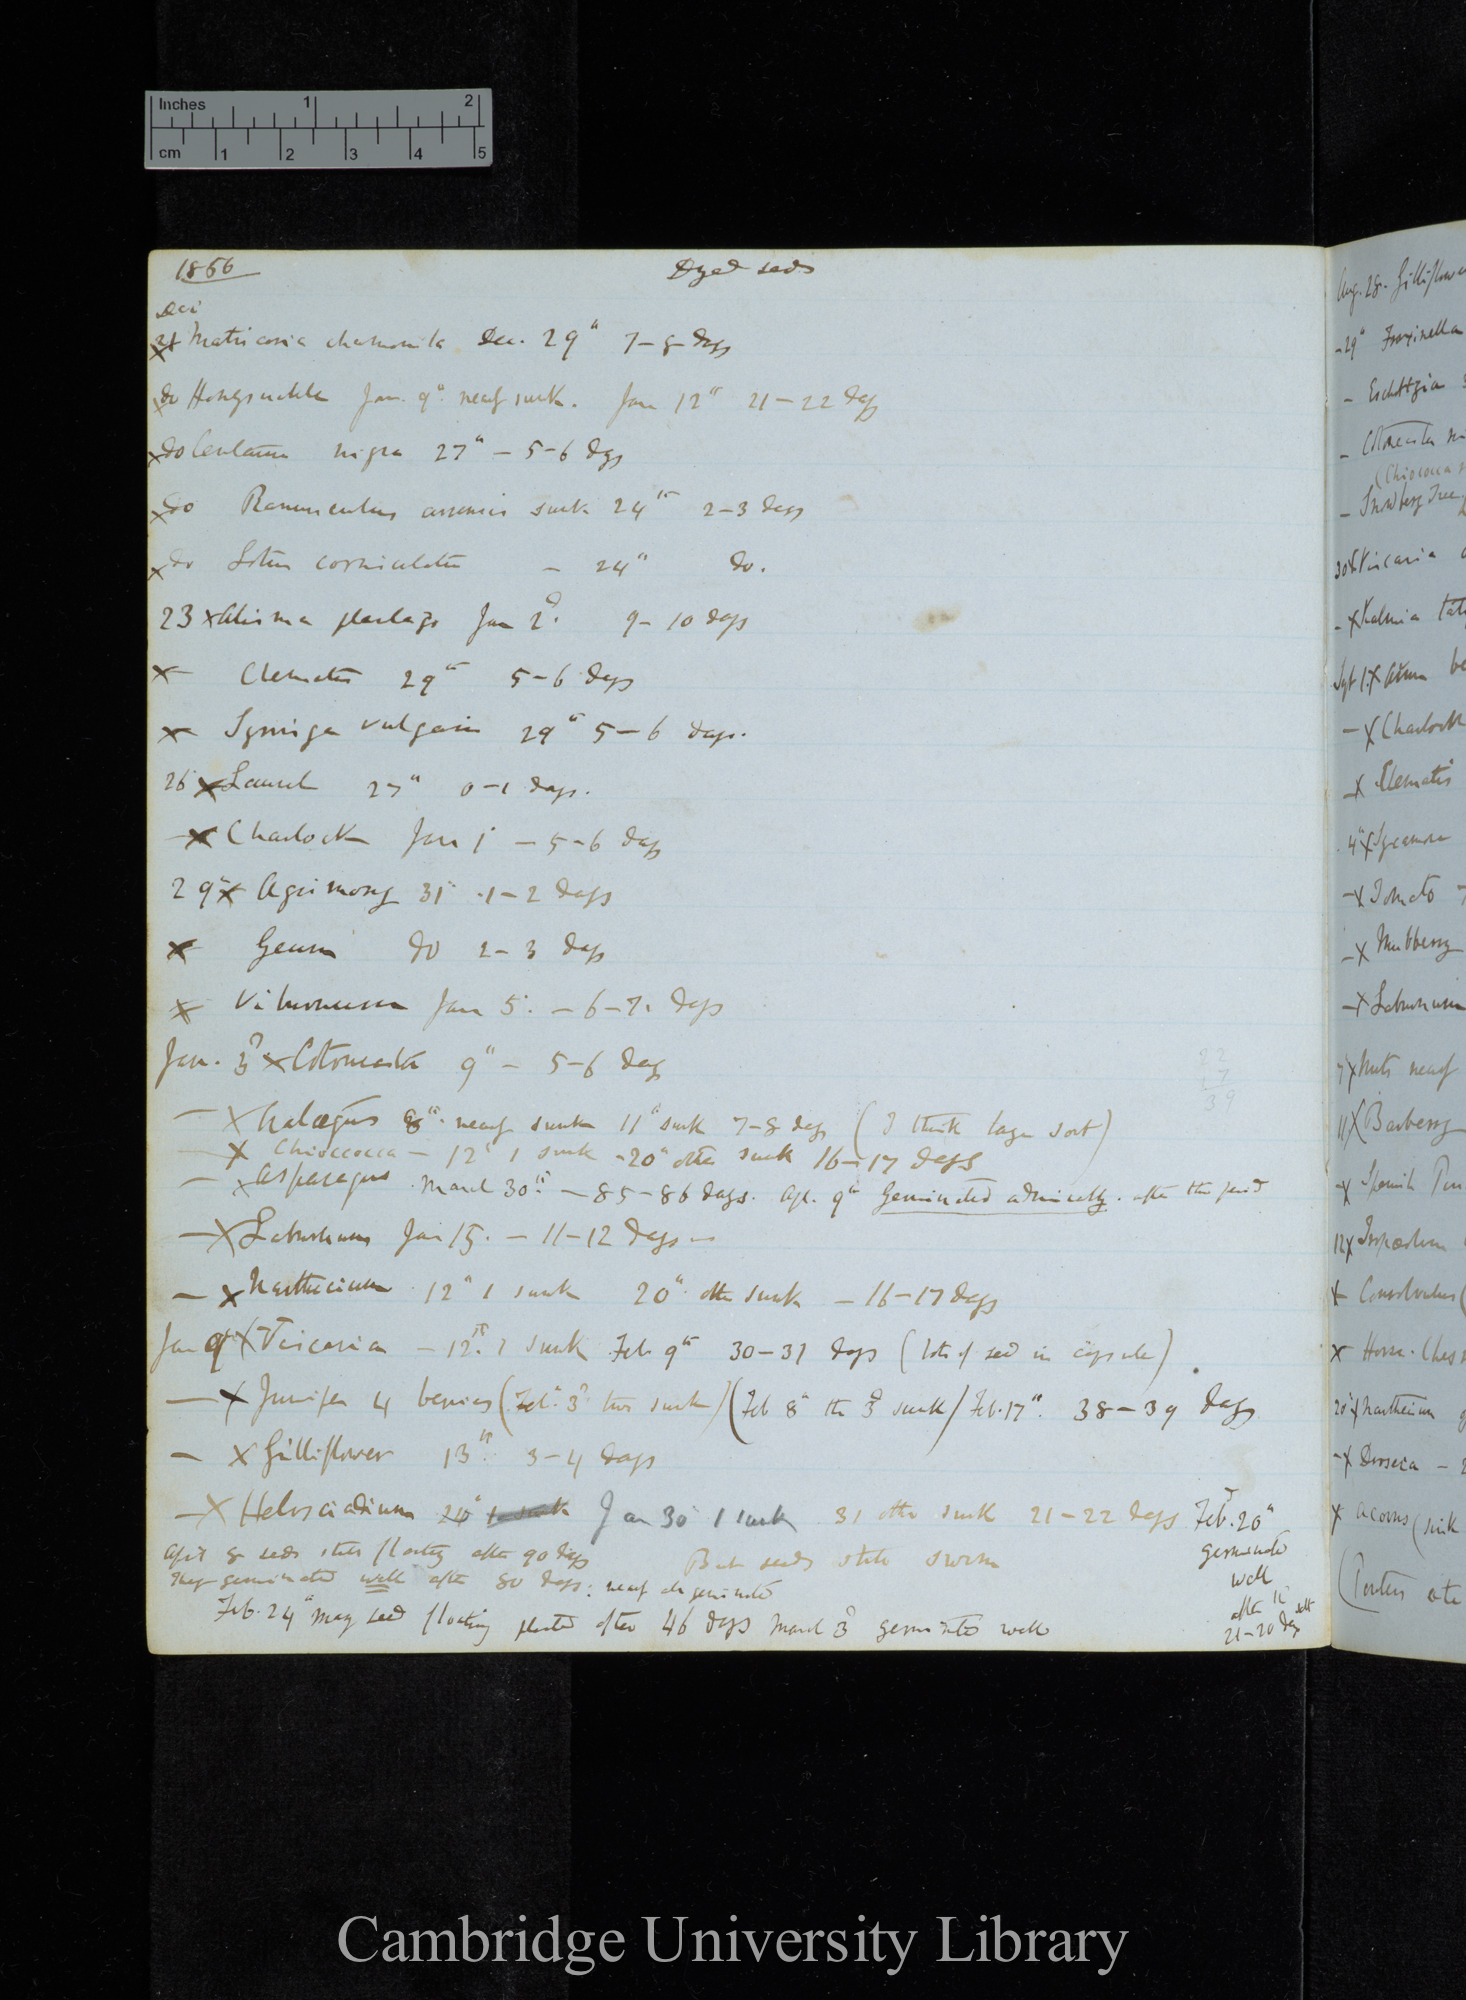 Inches 1 2
cm 1 2 3 4 5
1856 Dryed seeds
Dec
21 Matricaria chamomila Dec. 29th 7-8 days
do Honeysuckle Jan. 9th nearly sunk. Jan 12th 21-22 days
do Centaurea nigra 27th - 5-6 dys
do Ranunculus arvensis sunk 24th 2-3 days
do Lotus corniculatus - 24th do.
23 x Alisma plantago Jan 2d. 9-10 days
x Clematis 29th 5-6 days
x Syringa vulgaris 29th 5-6 days.
26 x Laurel 27th 0-1 days.
- x Charlock Jan 1 - 5-6 days
29th x Agrimony 31 1-2 days
x Geum do 2-3 days
x Viburnum Jan 5. - 6-7. days
Jan. 3d x Cotoneaster 9th - 5-6 days
- x Crataegus 8th nearly sunk 11th sunk 7-8 days (I think large sort)
- x Chiococca - 12th 1 sunk - 20th other sunk 16-17 days
- x Asparagus March 30th. - 85-86 days. Apl. 9th Germinated admirably. after this period
- x Laburnum Jan 15. - 11-12 days -
- x Narthecium 12th 1 sunk 20th other sunk - 16-17 days
Jan 9th x - 12th. 1 sunk Feb 9th 30-31 days (lots of seed in capsule)
- x Juniper 4 berries (Feb. 3d two sunk) (Feb 8th the 3d sunk / Feb. 17th. 38-39 days
- x Gilliflower 13th. 3-4 days
- x Helosciadium 20th 1 sunk Jan 30 1 sunk 31 other sunk 21-22 days Feb. 20th
germinated
well
after in salt
21-20 days
April 8 seeds still floating after 90 days But seeds still swim
They germinated well after 80 days: nearly all germinated
Feb. 24th many seed floating planted after 46 days March 3d germinated well
22
17
39
Aug. 28. Gilliflower
- 29th Fraxinella
- Escholtzia
- Cotoneaster
(Chiococca
- Snowberry Tree
30
- x Kalmia
Sept 1. x
- x Charlock
- x Clematis
4th x Sycamore
- x Tomato
- x Mulberry
- x Laburnum
7 x Nuts nearly
11 x Barberry
- x Spanish
12 x Tropaeolum
x Convolvulus (
x Horse-Ches
20th x Narthecium
- x Drosera -
x Acorns (sink
Cambridge University Library